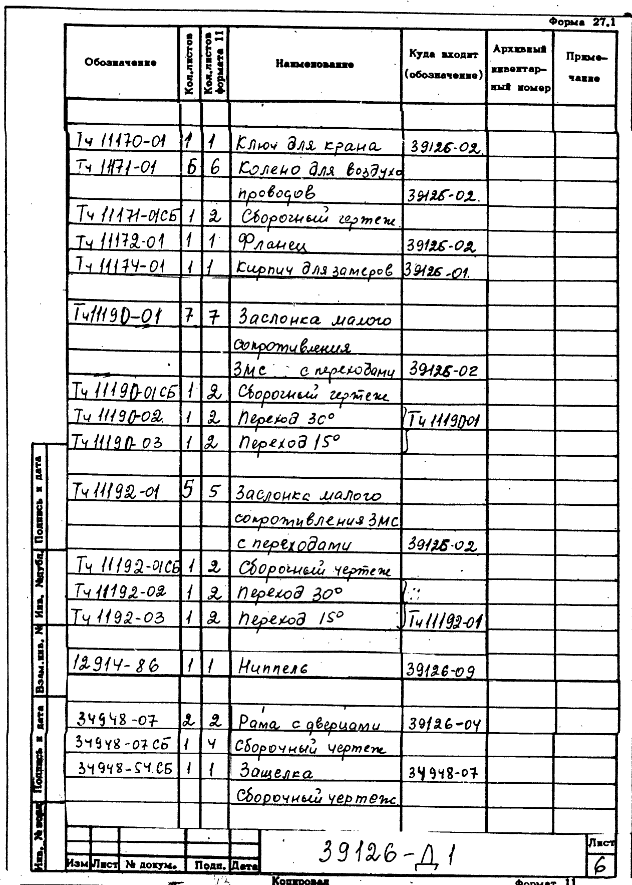 Форма 27.1
Обозначение Кол.листов Кол.листов формата 11 Наименование Куда входит (обозначение) Архивный инвентарный номер Примечание
Тч 11170-01 1 1 Ключ для крана 39126-02
Тч 11171-01 6 6 Колено для воздухо
проводов 39126-02.
Тч 11171-01СБ 1 2 Сборочный чертеж
Тч 11172-01 1 1 Фланец 39126-02
Тч 11174-01 1 1 Кирпич для замеров 39126-01.
Тч 11190-01 7 7 Заслонка малого
сопротивления
ЗМС с переходами 39126-02
Тч 11190-01СБ 1 2 Сборочный чертеж
Тч 11190-02. 1 2 Переход 30° Тч 11190-01
Тч 11190-03 1 2 Переход 15°
Тч 11192-01 5 5 Заслонка малого
сопротивления ЗМС
с переходами 39126-02
Тч 11192-01СБ 1 2 Сборочный чертеж
Тч 11192-02 1 2 Переход 30°
Тч 1192-03 1 2 Переход 15° Тч 11192-01
12914-86 1 1 Ниппель 39126-09
34948-07 2 2 Рама с дверцами 39126-04
34948-07СБ 1 4 Сборочный чертеж
34948-54.СБ 1 1 Защелка 34948-07
Сборочный чертеж
Инв. № подл. Подпись и дата Взам.инв. № Инв. № дубл. Подпись и дата
Изм Лист № докум. Подп. Дата
39126-Д1
Лист
6
Копировал Формат 11